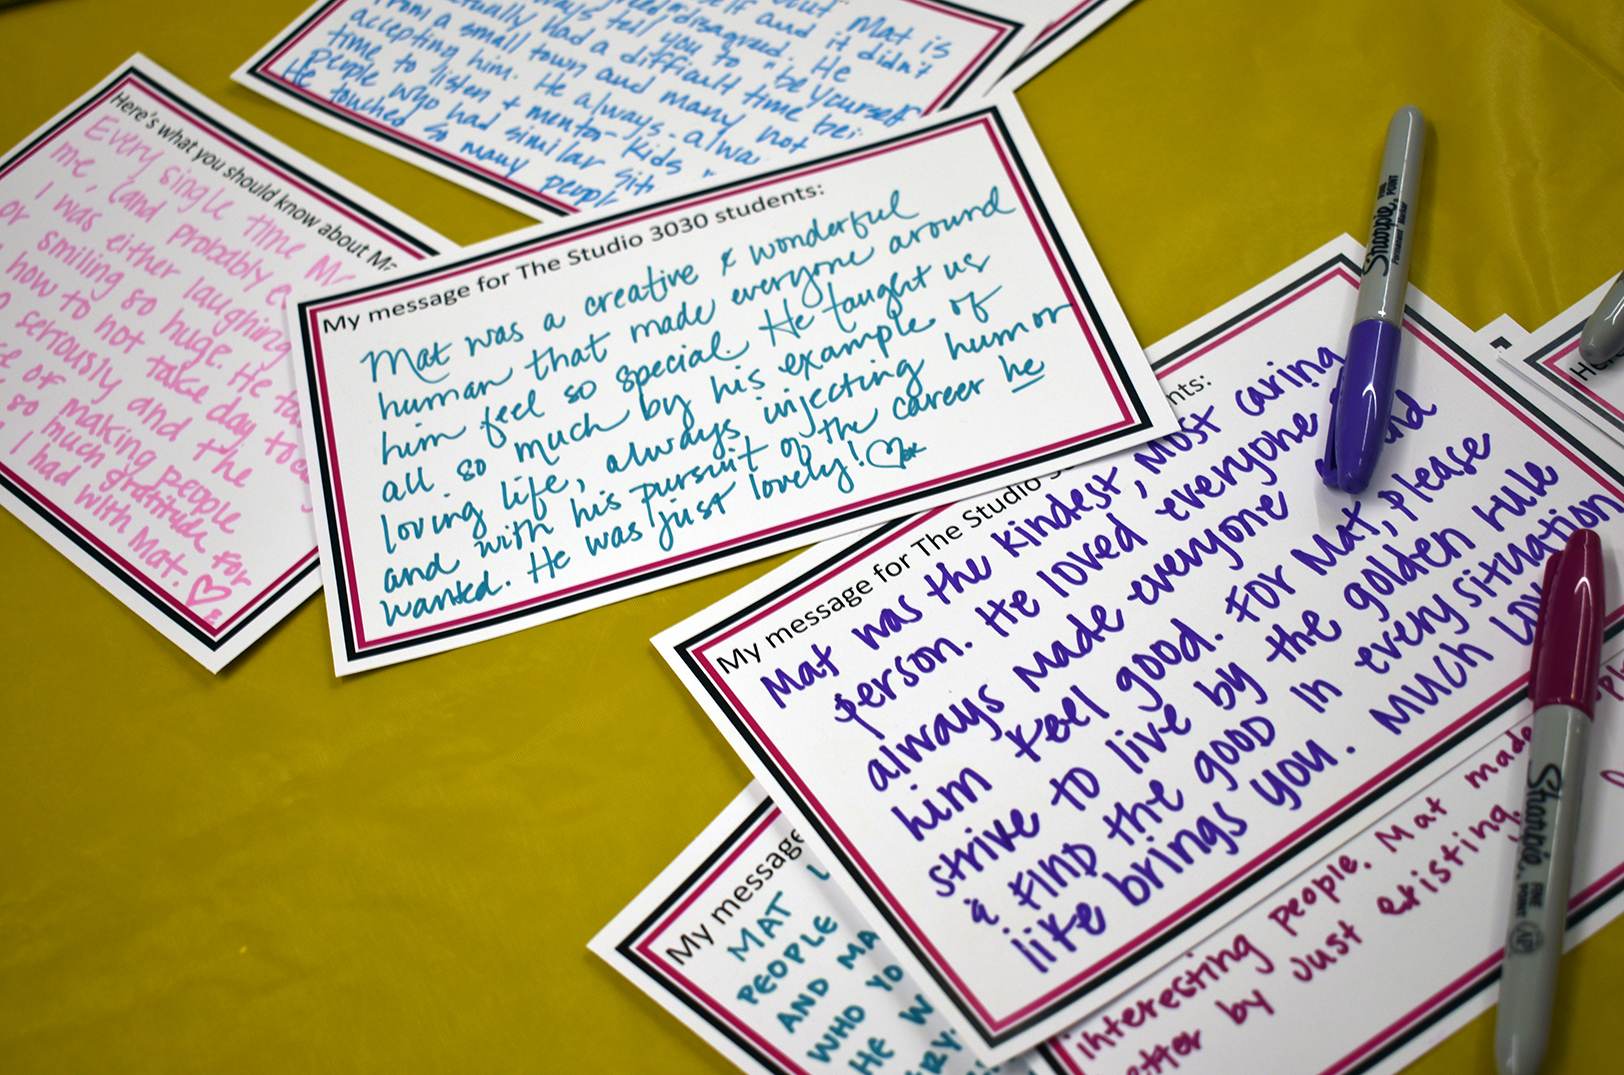 out Mat is
self and it didn't
disagreed. He
ways tell you to "be yourself"
actually had a difficult time
from a small town and many not
accepting him. He always-
time to listen & mentor kids
people who had similar
He touched so many
Here's what you should know about
Every single time
me, (and probably
I was either laughing
or smiling so huge. He
how to not take day to
seriously and the
of making people
so much gratitude for
I had with Mat. ♡
My message for The Studio 3030 students:
Mat was a creative & wonderful
human that made everyone around
him feel so special. He taught us
all so much by his example of
loving life, always injecting humor
and with his pursuit of the career he
wanted. He was just lovely! ♡
My message for The Studio
nts:
Mat was the kindest, most caring
person. He loved everyone &
always made everyone
him feel good. For Mat, please
strive to live by the golden rule
& find the good in every situation
life brings you. Much
My message
MAT
PEOPLE
AND
WHO
HE
made
interesting people. Mat
by just existing.
Sharpie
FINE POINT
Permanent Marker
Sharpie
FINE
POINT
AP